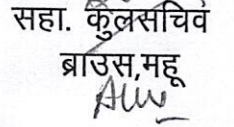 सहा. कुलसचिव
ब्राउस,महू